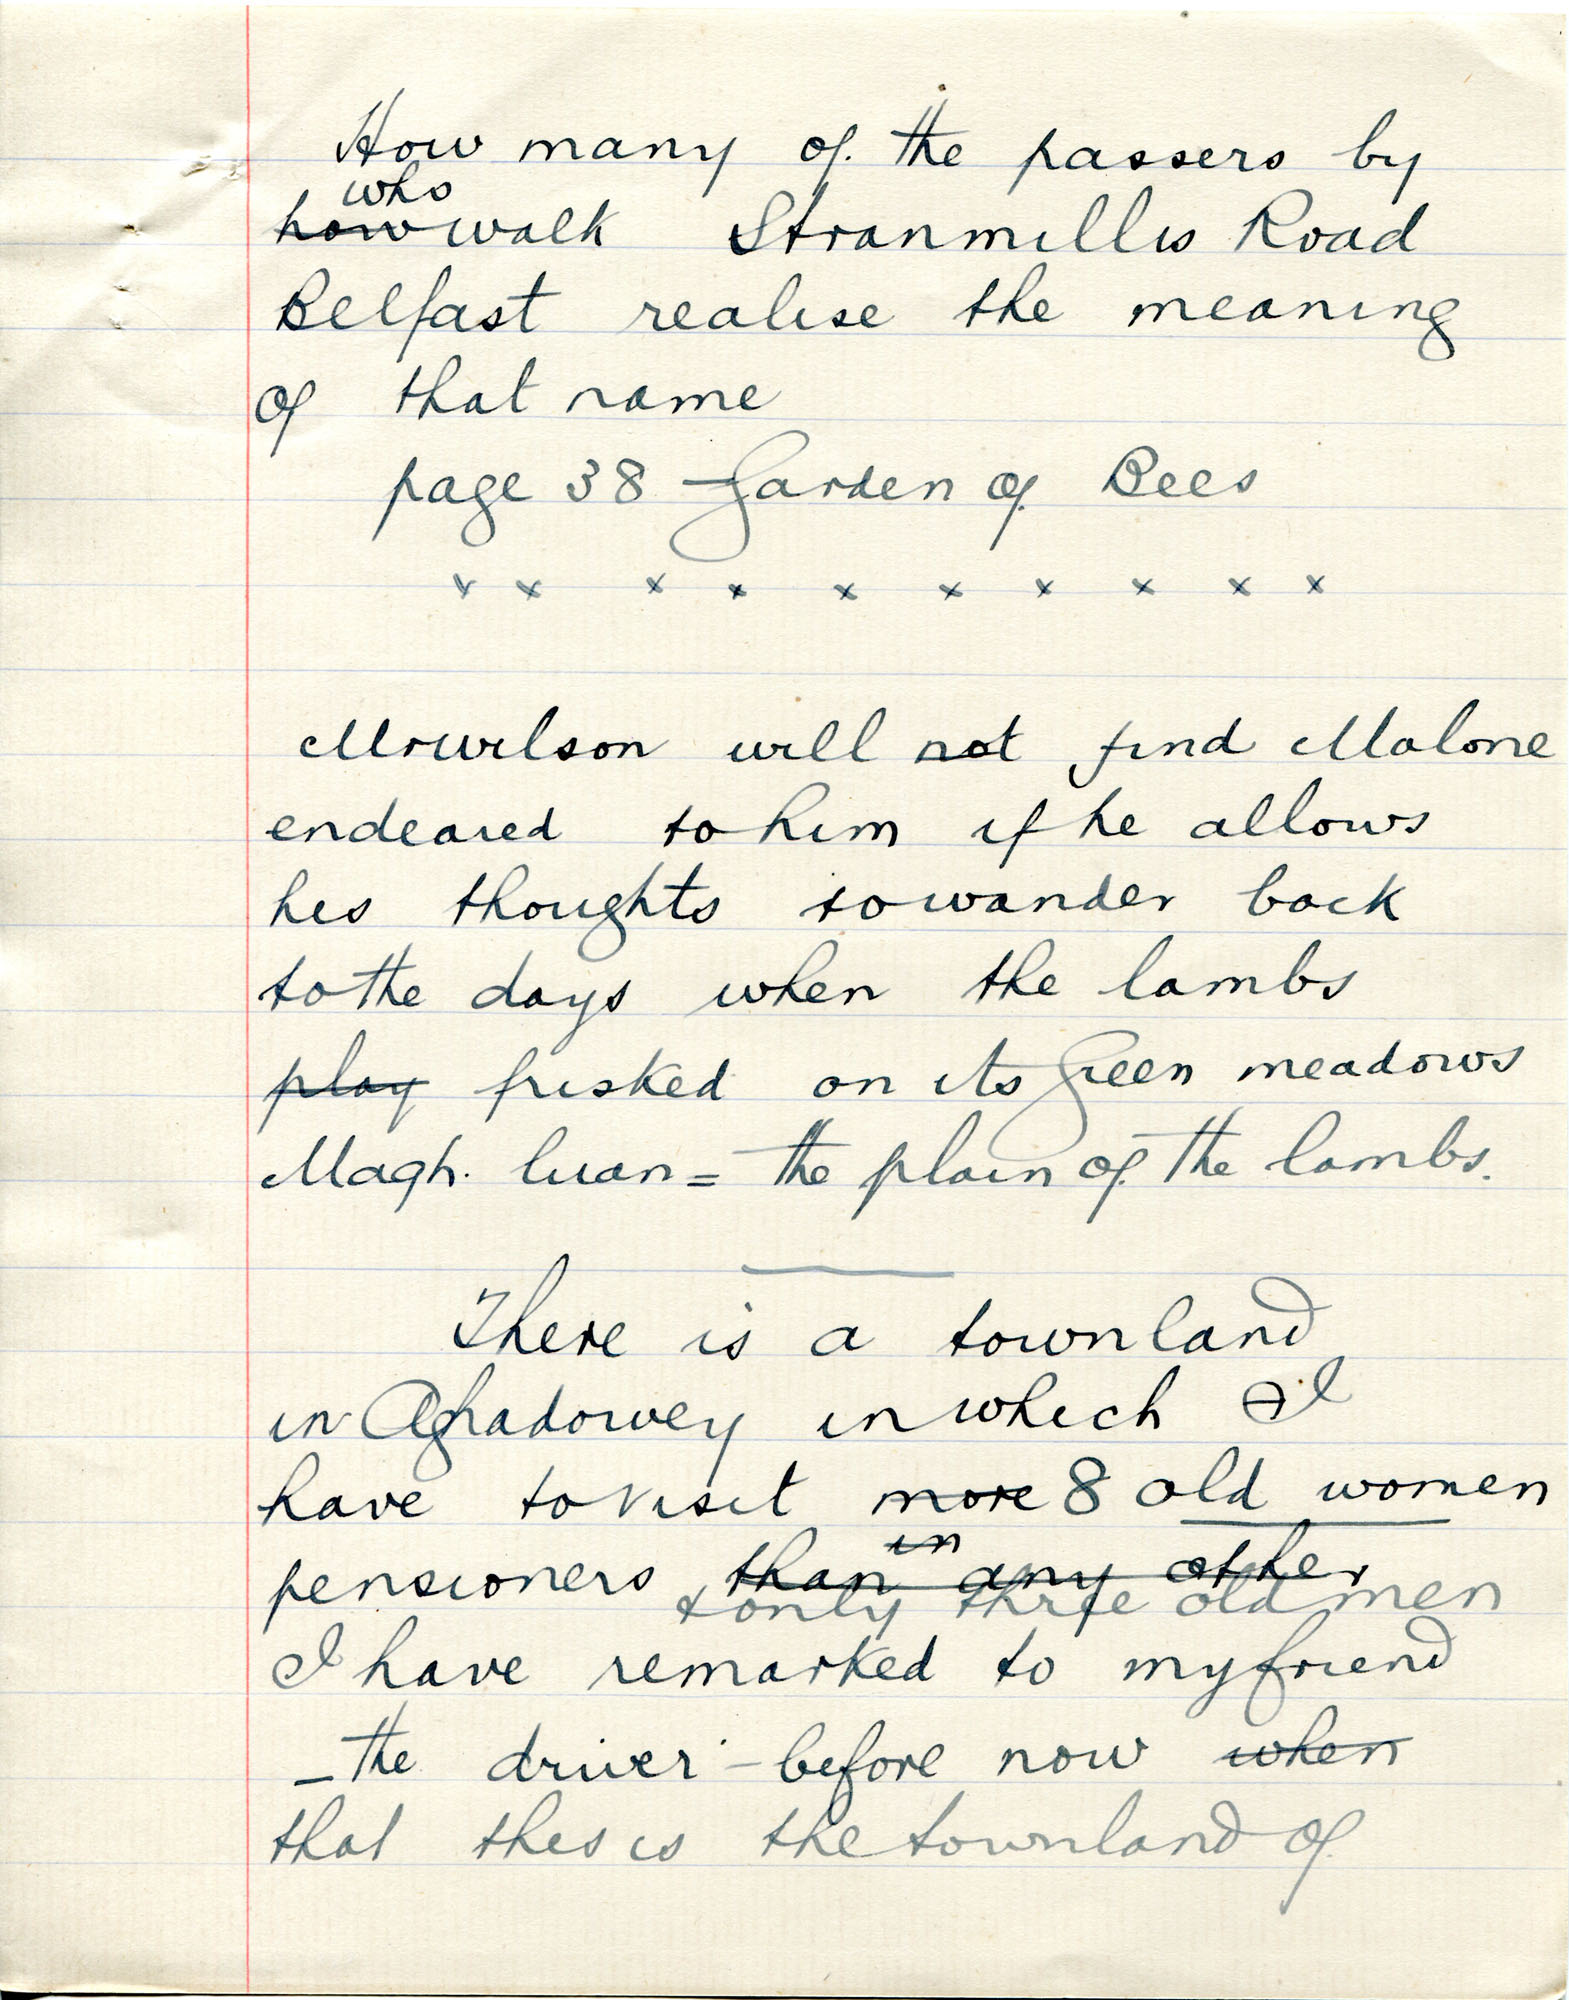 How many of the passers by
who
how walk Stranmillis Road
Belfast realise the meaning
of that name
page 38 Garden of Bees
x x x x x x x x x x
Mr Wilson will not find Malone
endeared to him if he allows
his thoughts to wander back
to the days when the lambs
play frisked on its green meadows
Magh. luan = the plain of the lambs.
There is a townland
in Aghadowey in which I
have to visit more 8 old women
in
pensioners than any other
& only three old men
I have remarked to my friend
- the driver - before now when
that this is the townland of